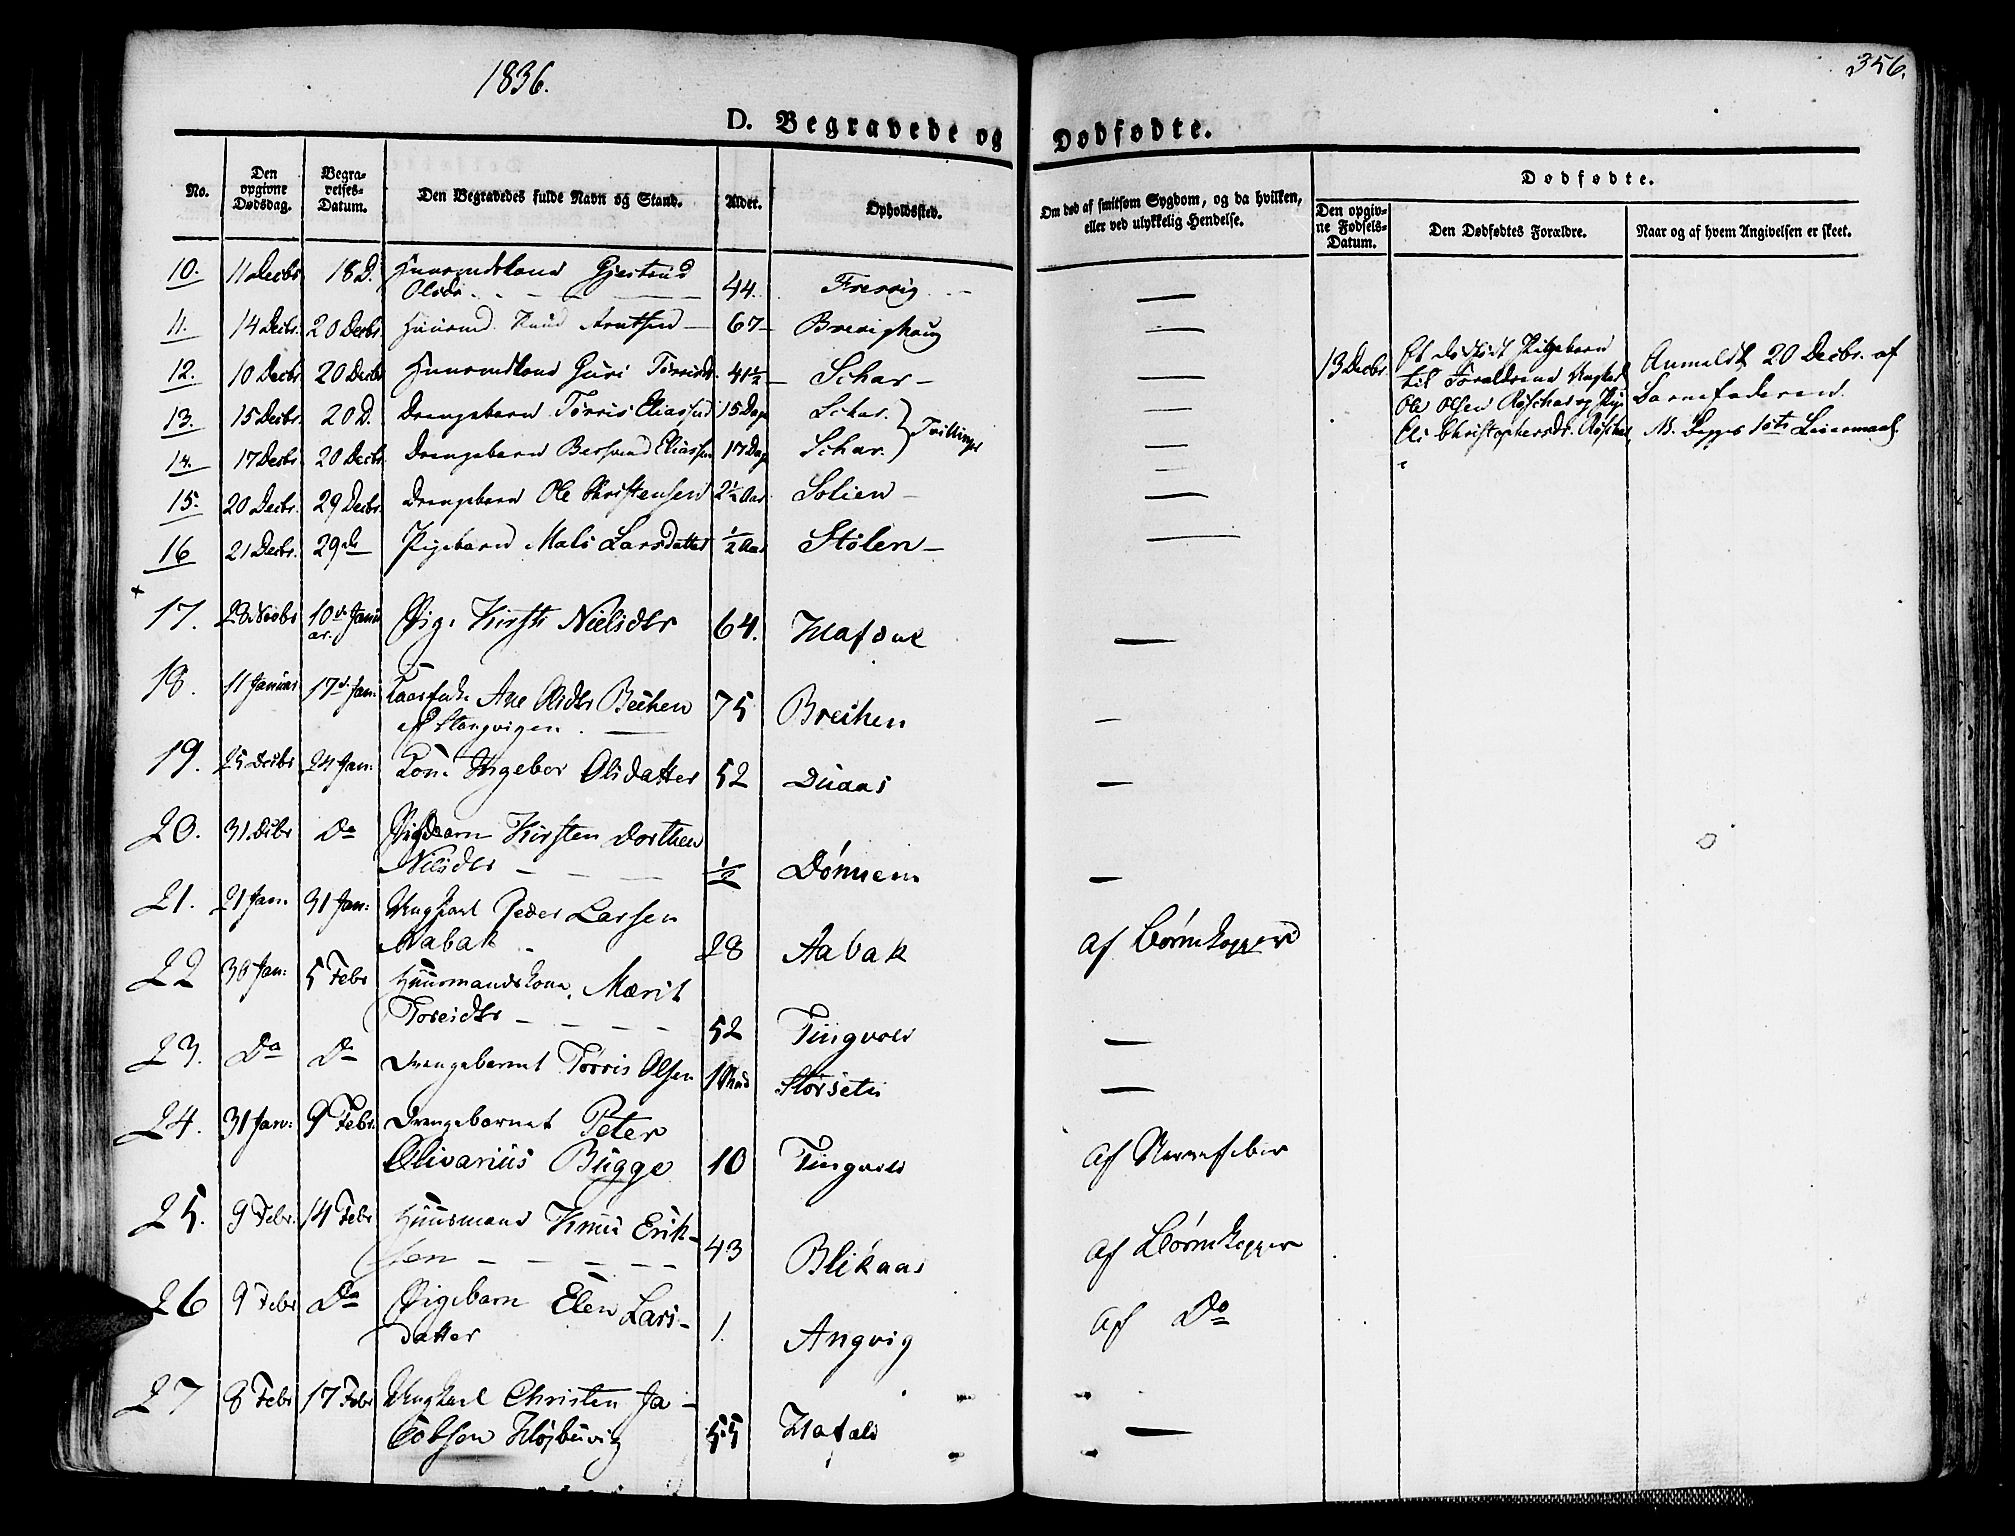 1836.
356.
D. Begravede og Dødfødte.
No.
Den opgivne Dødsdag.
Begravelses-Datum.
Den Begravedes fulde Navn og Stand.
Alder.
Opholdssted.
Om død af smitsom Sygdom, og da hvilken, eller ved ulykkelig Hendelse.
Dødfødte.
Den opgivne Fødsels-Datum.
Den Dødfødtes Forældre.
Naar og af hvem Angivelsen er skeet.
10. 11 Decbr 18 D. Huusmdskone Gjertrud
Olsdr. 44. —
11. 14 Decbr. 20 Decbr. Huusmd. Knud Knutsen — 67 — Brevighaug —
12. 10 Decbr 20 Decbr Huusmdkone Guri Tørrisdr 41½ — Schar — —
13. 15 Decbr. 20 D. Drengebarn Tørris Eliassen 15 Dage Schar. } Tvillinger —
14. 17 Decbr. 20 Decbr. Drengebarn Eliassen 17 Dage Schar. —
15. 20 Decbr. 29 Decbr. Drengebarn Ole Christensen 2½ Aar Solien — —
16 21 Decbr. 29 d. Pigebarn Mali Larsdatter ½ Aar Stølen — —
13 Decbr. Et dødfødt Pigebarn
til Forældrene Ungkarl
Ole Olsen Røschar og Pige
Christophersdr. Røschar
Anmeldt 20 Decbr. af
Barnefaderen.
NB. Begges 1ste Leiermaal
17. 10 d. Janu
ar. Pige Kirsti Nielsdtr 64. —
18. 11 Januar 17 d. Jan: Ane Olsdtr Breihen
af Stangvigen. — 75 Breihen —
19. 25 Decbr 24 Jan: Kone Ingebor Olsdatter 52 Duaas —
20. 31 Decbr Do Pigebarn Kirsten Dorthea
Nilsdtr — — — ½ Dønnem —
21. 21 Jan. 31 Jan: Ungkarl Peder Larsen
Aabak — 28 Aabak af Børnekopper
22 30 Jan: 5 Febr Huusmandskone, Marit
Toreidtr — — — — 52 Tingvold —
23. Do Do Drengebarnet Tørris Olsen 1 Storsetn —
24. 31 Jan: 9 Febr. Drengebarnet Peter
Olivarius Bugge 10 Tingvold af Nervefeber
25. 9 Febr. 14 Febr Huusmand Knud Erik-
sen — — — — — 43 Blikaas af Børnekopper
26 9 Febr Do Pigebarn Elen Lars-
datter 1. Angvig af Do
27 8 Febr 17 Febr Ungkarl Christen Ja-
cobsen Højbuvig 55 —